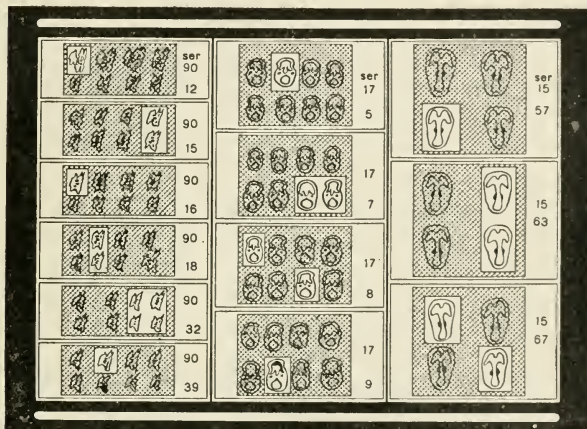 ser
90
12
90
15
90
16
90
18
90
32
90
39
ser
17
5
17
7
17
8
17
9
ser
15
57
15
63
15
67